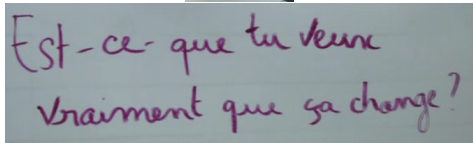 Est-ce-que tu veux
vraiment que ça change?